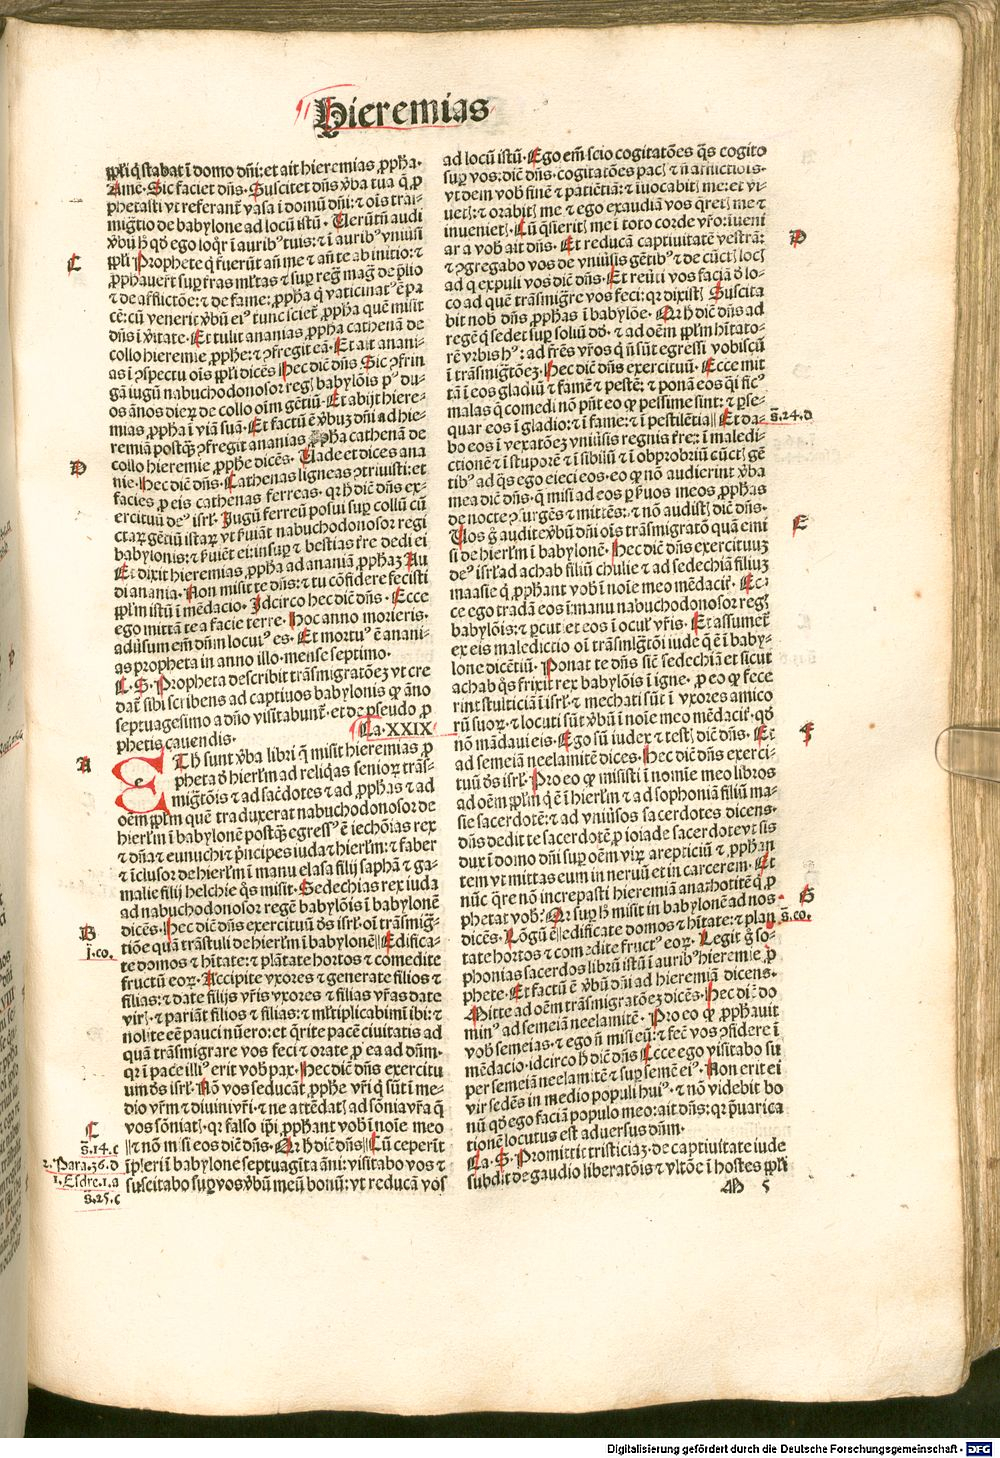 Hieremias
ppłi q̇ stabat ī domo dn̄i: et ait hieremias ꝓpħa.
Amē. Sic faciet dn̄s. Suscitet dn̄s v̄ba tua q̄ ꝓ
phetasti vt referant̄ vasa ī domū dn̄i: ⁊ oīs trās
mig̃tio de babylone ad locū istū. Uerūtn̄ audi
v̄bū ħ qđ ego loq̄r ī aurib⁹ tuis: ⁊ ī aurib⁹ vniu̓si
ppłi Prophete q̇ fuerūt an̄ me ⁊ an̄ te ab initio: ⁊
C
ꝓphauer̄t suꝑ t̄ras ml̄tas ⁊ suꝑ reg̃ mag̃ de p̄lio
⁊ de afflictōe: ⁊ de fame: ꝓpħa q̇ vaticinat⁹ ē pa
cē: cū venerit v̄bū ei⁹ tunc sciet̄ ꝓpħa quē misit
dn̄s ī v̄itate. Et tulit ananias ꝓpħa cathenā de
collo hieremie ꝓpħe: ⁊ ꝯfregit eā. Et ait anani-
as ī ꝯspectu oīs ppłi dicēs Hec dic̄ dn̄s Sic ꝯfrin
gā iugū nabuchodonosor reg̃ babylōis p⁹ du-
os ānos dieꝝ de collo oīm gētiū. Et abijt hiere-
mias ꝓpħa ī viā suā. Et factū ē v̄buꝫ dn̄i ad hie-
remiā postq̄ꝫ ꝯfregit ananias ꝓpħa cathenā de
collo hieremie ꝓpħe dicēs. Uade et dices ana
D
nie. Hec dic̄ dn̄s. Cathenas ligneas ꝯtriuisti: et
facies ꝓ eis cathenas ferreas. qꝛ ħ dic̄ dn̄s ex-
ercituū de⁹ isrł. Jugū ferreū posui suꝑ collū cū
ctaꝝ gētiū istaꝝ vt s̓uiāt nabuchodonosor regi
babylonis: ⁊ s̓uiēt ei: insuꝑ ⁊ bestias t̄re dedi ei
Et dixit hieremias ꝓpħa ad ananiā ꝓpħaꝫ Au
di anania. Non misit te dn̄s: ⁊ tu cōfidere fecisti
ppłm istū ī mēdacio. Idcirco hec dic̄ dn̄s. Ecce
ego mittā te a facie terre. Hoc anno morieris.
adūsum em̄ dn̄m locut⁹ es. Et mortu⁹ ē anani-
as propheta in anno illo. mense septimo.
C. S. Propheta describit trāsmigratōeꝫ vt cre
dat̄ sibi scribens ad captiuos babylonis qꝫ āno
septuagesimo a dn̄o visitabunt̄. et de pseudo ꝓ
phetis cauendis.
Ca. XXIX
A
Et ħ sunt v̄ba libri q̄ misit hieremias ꝓ
pheta đ hierłm ad reliq̇as senioꝝ trās-
mig̃tōis ⁊ ad sac̄dotes ⁊ ad ꝓpħas ⁊ ad
oēm ppłm quē traduxerat nabuchodonosor de
hierłm ī babylonē postq̄ꝫ egress⁹ ē iechōias rex
⁊ dn̄a ⁊ eunuchi ⁊ p̄ncipes iuda ⁊ hierłm: ⁊ faber
⁊ īclusor de hierłm ī manu elasa filij saphā ⁊ ga-
malie filij helchie q̄s misit. Sedechias rex iuda
ad nabuchodonosor regē babylōis ī babylonē
B
dicēs. Hec dic̄ dn̄s exercituū đs isrł. oī trāsmig̃-
j. co.
tiōe quā trāstuli de hierłm ī babylonē Edifica-
te domos ⁊ hītate: ⁊ plātate hortos ⁊ comedite
fructū eoꝝ. Accipite vxores ⁊ generate filios ⁊
filias: ⁊ date filijs vr̄is vxores ⁊ filias vr̄as date
vir̄. ⁊ pariāt filios ⁊ filias: ⁊ ml̄tiplicabimī ibi: ⁊
nolite eē pauci nūero: et q̄rite pacē ciuitatis ad
quā trāsmigrare vos feci ⁊ orate ꝓ ea ad dn̄m.
qꝛ ī pace illi⁹ erit vob̄ pax. Hec dic̄ dn̄s exercitu
um đs isrł. Nō vos seducāt ꝓpħe vr̄i q̇ sūt ī me-
dio vr̄m ⁊ diuini vr̄i. ⁊ ne attēdat̄ ad sōnia vr̄a q̄
C
vos sōniat̄. qꝛ falso ip̄i ꝓpħant vob̄ ī noīe meo
s̄. 14. c
⁊ nō misi eos dic̄ dn̄s. Qꝛ ħ dic̄ dn̄s Cū ceperīt
2. Para. 36. d
īpleri ī babylone septuagīta āni: visitabo vos ⁊
1. Esdre. 1. a
suscitabo suꝑ vos v̄bū meū bonū: vt reducā vos
s̄. 25. c
ad locū istū. Ego em̄ scio cogitatōes q̄s cogito
suꝑ vos: dic̄ dn̄s. cogitatōes pac̄ ⁊ n̄ afflictiōis.
vt dem vob̄ finē ⁊ patiētiā: ⁊ īuocabit̄ me: et vi-
uet̄: ⁊ orabit̄ me ⁊ ego exaudiā vos q̄ret̄ me ⁊
inueniet̄. Cū q̄sierit̄ me ī toto corde vr̄o: īueni
D
ar a vob̄ ait dn̄s. Et reducā captiuitatē vestrā:
⁊ ꝯgregabo vos de vniu̓sis gētib⁹ ⁊ de cūct̄ loc̄
ad q̄ expuli vos dic̄ dn̄s. Et reu̓ti vos faciā đ lo-
co ad quē trāsmig̃re vos feci: qꝛ dixist̄ Suscita
bit nob̄ dn̄s ꝓpħas ī babylōe. Qꝛ ħ dic̄ dn̄s ad
regē q̇ sedet suꝑ soliū dđ. ⁊ ad oēm ppłm hītato-
rē vrbis h⁹: ad fr̄es vr̄os q̇ n̄ sūt egressi vobiscū
ī trāsmig̃tōeꝫ. Hec dic̄ dn̄s exercituū. Ecce mit
tā ī eos gladiū ⁊ famē ⁊ pestē: ⁊ ponā eos q̄si fic⁹
malas q̄ comedi nō pn̄t eo qꝫ pessime sint: ⁊ ꝑse-
quar eos ī gladio: ⁊ ī fame: ⁊ ī pestilētia Et da-
s̄. 24. d
bo eos ī vexatōeꝫ vniu̓sis regnis t̄re: ī maledi-
ctionē ⁊ ī stuporē ⁊ ī sibilū ⁊ ī obprobriū cūct̄ gē
tib⁹ ad q̄s ego eieci eos: eo qꝫ nō audierint v̄ba
mea dic̄ dn̄s. q̄ misi ad eos ꝑ s̓uos meos ꝓpħas
de nocte ꝯsurgēs ⁊ mittēs: ⁊ nō audist̄ dic̄ dn̄s.
E
Uos g̊ audite v̄bū dn̄i oīs trāsmigratō quā emi
si de hierłm ī babylonē. Hec dic̄ dn̄s exercituuꝫ
de⁹ isrł ad achab filiū chulie ⁊ ad sedechiā filiuꝫ
maasie q̇ ꝓpħant vob̄ ī noīe meo mēdacir̄. Ec-
ce ego tradā eos ī manu nabuchodonosor reg̃
babylōis: ⁊ ꝑcutiet eos ī ocuł vr̄is. Et assumet̄
ex eis maledictio oī trāsmig̃tōi iude q̄ ē ī baby-
lone dicētiū. Ponat te dn̄s sic̄ sedechiā et sicut
achab q̄s frixit rex babylōis ī igne. ꝓ eo qꝫ fece
rint stulticiā ī isrł. ⁊ mechati sūt ī vxores amico
rū suoꝝ. ⁊ locuti sūt v̄bū ī noīe meo mēdacir̄. qđ
nō mādaui eis. Ego sū iudex ⁊ test̄ dic̄ dn̄s. Et
F
ad semeiā neelamitē dices. Hec dic̄ dn̄s exerci-
tuū đs isrł. Pro eo qꝫ misisti ī nomīe meo libros
ad oēm ppłm q̇ ē ī hierłm ⁊ ad sophoniā filiū ma-
sie sacerdotē: ⁊ ad vniu̓sos sacerdotes dicens.
dn̄s dedit te sacerdotē ꝓ ioiade sacerdote vt sis
dux ī domo dn̄i suꝑ oēm viꝝ arepticiū ⁊ ꝓpħan
tem vt mittas eum in neruū et in carcerem. Et
nūc q̄re nō increpasti hieremiā anathotitē q̇ ꝓ
G
phetat vob̄? Qꝛ suꝑ ħ misit in babylonē ad nos
s̄. co.
dicēs. Lōgū ē edificate domos ⁊ hītate: ⁊ plan
tate hortos ⁊ comedite fruct⁹ eoꝝ. Legit g̊ so-
phonias sacerdos librū istū ī aurib⁹ hieremie ꝓ
phete. Et factū ē v̄bū dn̄i ad hieremiā dicens.
Mitte ad oēm trāsmigratōeꝫ dicēs. Hec dic̄ do
min⁹ ad semeiā neelamitē. Pro eo qꝫ ꝓpħauit
vob̄ semeias. ⁊ ego n̄ misi eū: ⁊ fec̄ vos ꝯfidere ī
mēdacio. idcirco ħ dic̄ dn̄s Ecce ego visitabo su
per semeiā neelamitē ⁊ suꝑ semē ei⁹. Non erit ei
vir sedēs in medio populi hui⁹. ⁊ nō videbit bo
nū qđ ego faciā populo meo: ait dn̄s: qꝛ p̄uarica
tionē locutus est aduersus dn̄m.
Ca. S. Promittit tristiciaꝫ de captiuitate iude
subdit de gaudio liberatōis ⁊ vltōe ī hostes ppłi
M 5
Digitalisierung gefördert durch die Deutsche Forschungsgemeinschaft - DFG